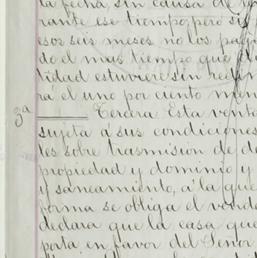 la fecha, sin causa de
rante ese tiempo, pero si
esos seis meses no los pag
de el mas tiempo que
tidad estuviere sin redi
rá el uno por ciento men
3ª Tercera Esta vent
sujeta á sus condiciones
les sobre trasmision de d
propiedad y dominio y
y saneamiento, a la que
forma se obliga el vend
declara que la casa que
porta en favor del Señor